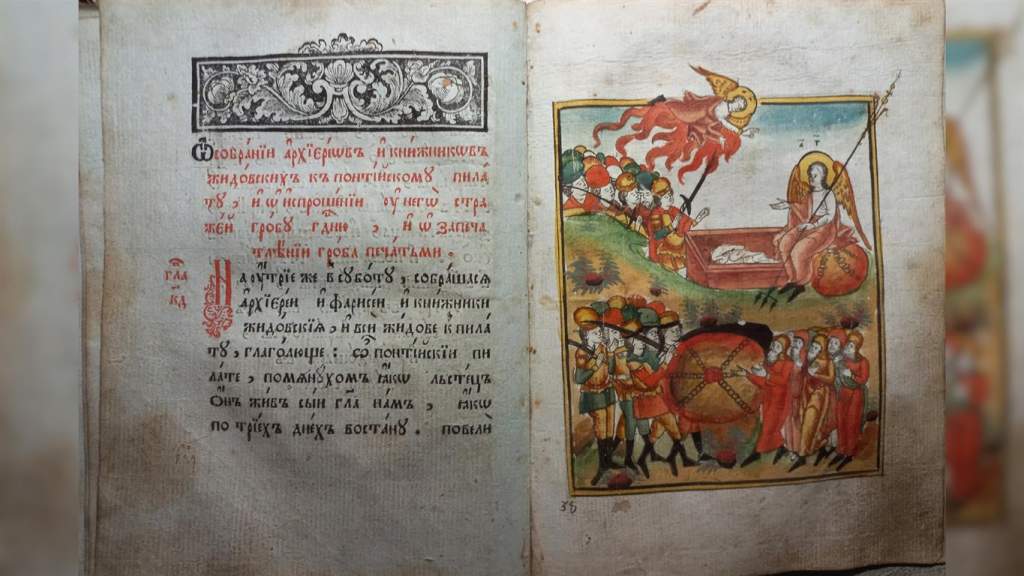 Ѿ собра́нїи а҆рхїере́ѡвъ, и҆ кни́жникѡвъ
жидовскихъ къ понті́йскому пила́
ту, и҆ ѡ҆ и҆спроше́нїи ᲂу҆ негѡ̀ стра́
же́й гро́бу гдⷭ҇ню, и҆ ѡ҆ запеча́
тлѣ́нїи гро́ба печа́тьми.
гла
к҃д
На ᲂу҆́трїе же в суббѡ́ту, собра́шася
а҆рхїере́и и҆ фарисе́и и҆ кни́жники
жидовскїя, и҆ вси жи́дове к пила́
ту, глаго́люще: ѽ понті́йскїи пи
ла́те, помяну́хомъ ꙗ҆́кѡ льсте́цъ
ѻ҆́нъ жи́въ сы́и гл҃а на́мъ, ꙗ҆́кѡ
по трїе́хъ дне́хъ воста́ну. повелѝ
38